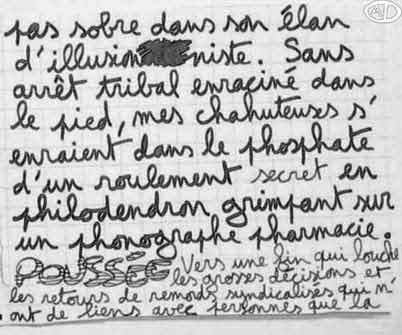 AJD
pas sobre dans son élan
d'illusionniste. Sans
arrêt tribal enraciné dans
le pied, mes chahuteuses s'
enraient dans le phosphate
d'un roulement secret en
philodendron grimpant sur
un phonographe pharmacie.
POUSSÉE Vers une fin qui louche
les grosses décisions et
les retours de remods syndicalisés qui n'
ont de liens avec personnes que la